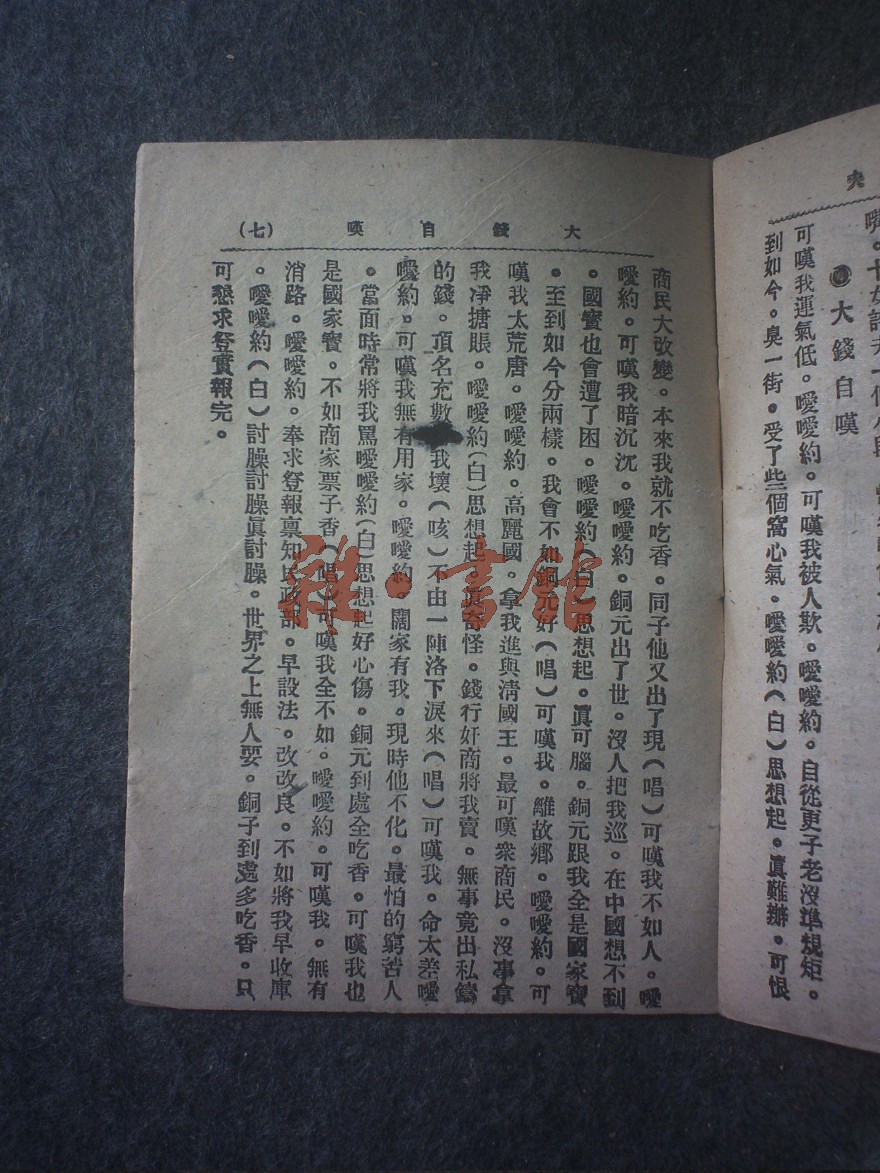 央
●大錢自嘆
可嘆我運氣低。噯噯約。可嘆我被人欺。噯噯約。自從更子老沒準規矩。
到如今。臭一街。受了些個窩心氣。噯噯約(白)思想起。眞難辦。可恨
大錢自嘆 (七)
商民大改變。本來我就不吃香。同子他又出了現(唱)可嘆我不如人。噯
噯約。可嘆我暗沉沉。噯噯約。銅元出了世。沒人把我巡。在中國想不到
。國寳也會遭了困。噯噯約(白)思想起。眞可腦。銅元跟我全是國家寳
。至到如今分兩樣。我會不如銅元好(唱)可嘆我。離故鄉。噯噯約。可
嘆我太荒唐。噯噯約。高麗國。拿我進與淸國王。最可嘆衆商民。沒事拿
我凈搪賬。噯噯約(白)思想起。眞奇怪。錢行奸商將我賣。無事竟出私鑄
的錢。頂名充數我壞(咳)不由一陣洛下淚來(唱)可嘆我。命太差噯
噯約。可嘆我無有用家。噯噯約。闊家有我。現時他不化。最怕的窮苦人
。當面時常將我罵噯噯約(白)思想起好心傷。銅元到處全吃香。可嘆我也
是國家寳。不如商家票子香(唱)可嘆我全不如。噯噯約。可嘆我。無有
消路。噯噯約。奉求登報禀知民政部。早設法。改改良。不如將我早收庫
。噯噯約(白)討臊討臊眞討臊。世界之上無人要。銅子到處多吃香。只
可懇求登實報完。
雜·書館